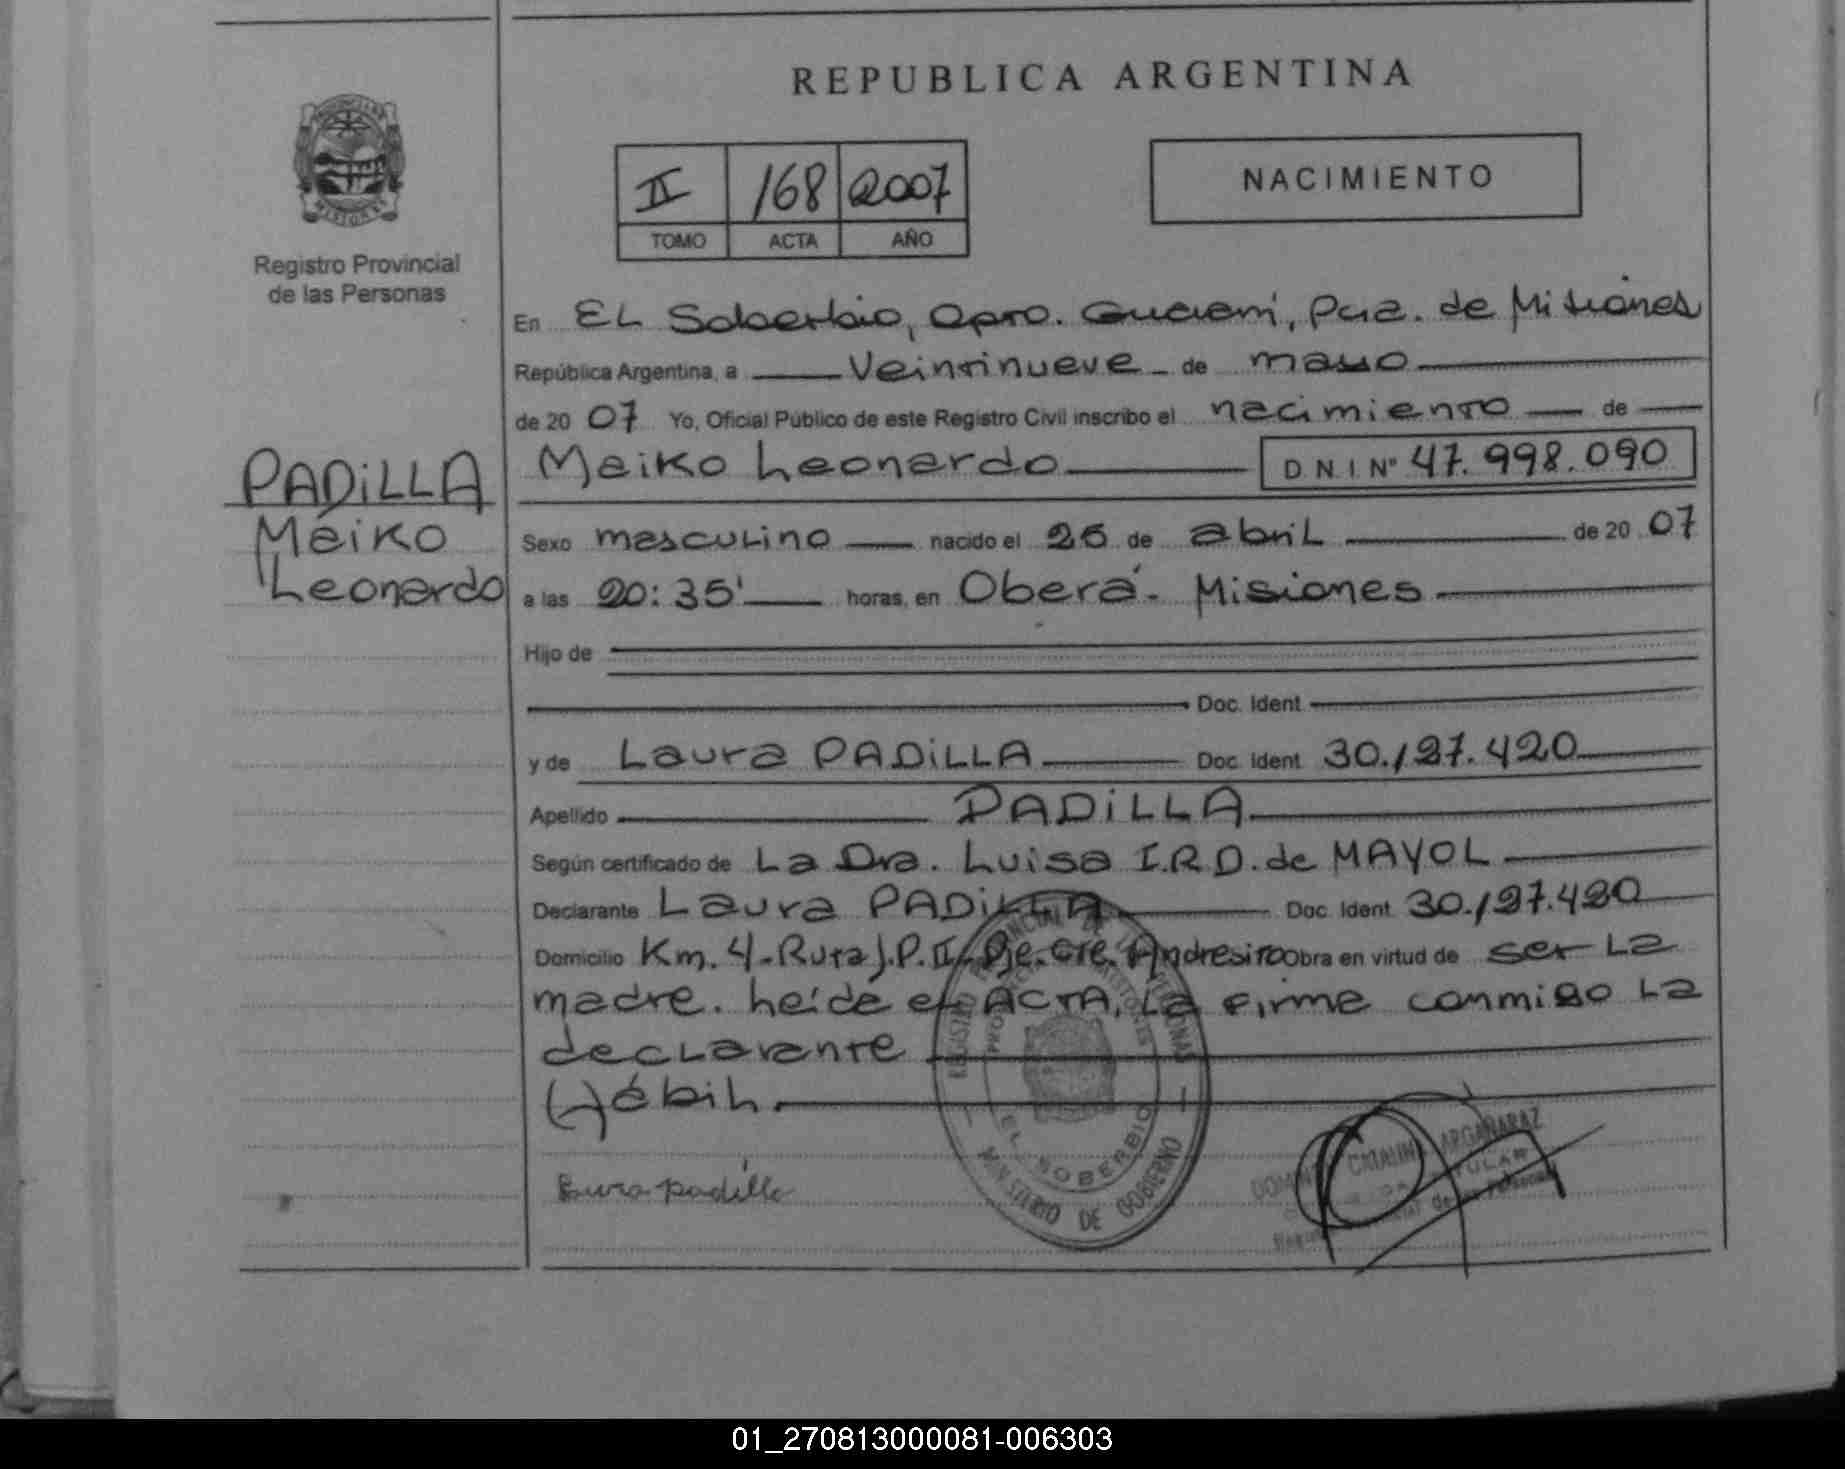 REPUBLICA ARGENTINA
II 168 2007
TOMO ACTA AÑO
NACIMIENTO
MISIONES
Registro Provincial
de las Personas
En EL Soberbio, Dpto. Guaraní, Pcia. de Misiones
República Argentina, a Veintinueve de mayo
de 20 07 Yo, Oficial Público de este Registro Civil inscribo el nacimiento de
PADiLLA
Meiko
Leonardo
Meiko Leonardo D.N.I. Nº 47.998.090
Sexo masculino nacido el 26 de abriL de 20 07
a las 20:35' horas, en Oberá - Misiones
Hijo de
Doc. Ident.
y de Laura PADiLLA Doc. Ident. 30.127.420
Apellido PADiLLA
Según certificado de La Dra. Luisa I.R.D. de MAYOL
Declarante Laura PADiLLA Doc. Ident. 30.127.420
Domicilio Km. 4-Ruta J.P. II Pje. Cte. Andresito Obra en virtud de ser La
madre. Leída eL ACTA, La firma conmigo La
declarante
(-) ébil.
Laura padilla
REGISTRO PROVINCIAL DE LAS PERSONAS
PROVINCIA DE MISIONES
EL SOBERBIO
MINISTERIO DE GOBIERNO
CATALINA ARGAÑARAZ
TITULAR
de las Personas
01_270813000081-006303